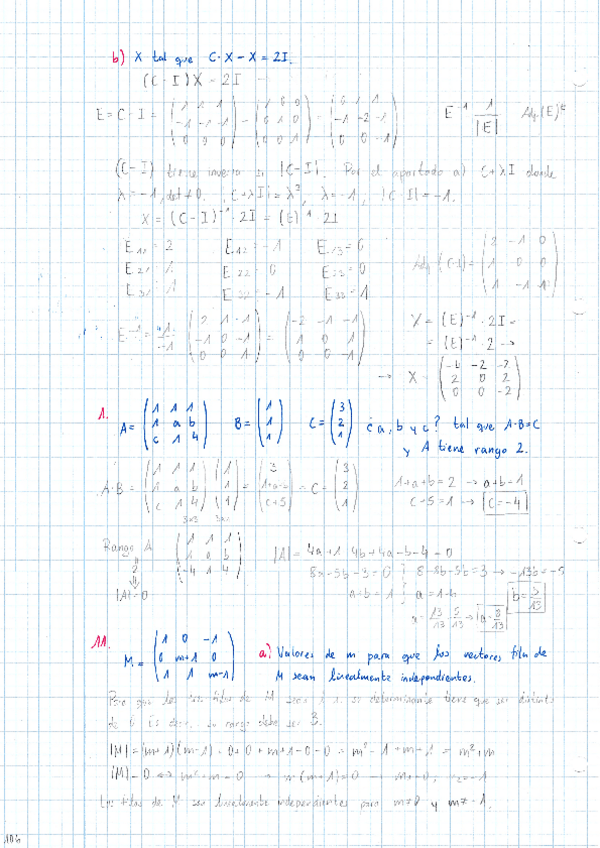 b) X tal que C·X-X=2I.
(C-I)X=2I
E=C-I= (1 1 1 / -1 -1 -1 / 0 0 0) - (1 0 0 / 0 1 0 / 0 0 1) = (0 1 1 / -1 -2 -1 / 0 0 -1) E^-1 1/|E| Adj(E)^t
(C-I) tiene inversa si |C-I|. Por el apartado a) C+λI donde
λ=-1, det≠0. |C+λI|=λ², λ=-1, |C-I|=-1.
X=(C-I)^-1·2I=(E)^-1 2I
E = 2 E = -1 E = 0
E E = 0 E = 0
E E = -1 E = 1
Adj (C-I)= (2 -1 0 / 1 0 0 / 1 -1 1)
E^-1 = 1/-1 (2 1 1 / -1 0 -1 / 0 0 1) = (-2 -1 -1 / 1 0 1 / 0 0 -1)
X=(E)^-1·2I=
=(E)^-1·2 →
→ X= (-4 -2 -2 / 2 0 2 / 0 0 -2)
1. A= (1 1 1 / 1 a b / c 1 4) B= (1 / 1 / 1) C= (3 / 2 / 1) ¿a, b y c? tal que A·B=C
y A tiene rango 2.
A·B= (1 1 1 / 1 a b / c 1 4) (1 / 1 / 1) = (3 / 1+a+b / c+5) = C= (3 / 2 / 1) 1+a+b=2 → a+b=1
c+5=1 → c=-4
Rango A (1 1 1 / 1 a b / -4 1 4) |A|=4a+1-4b+4a-b-4=0
2
|A|=0
8a-5b-3=0 8-8b-5b=3 → -13b=-5
a+b=1 a=1-b b=5/13
a=13/13-5/13 → a=8/13
11. M= (1 0 -1 / 0 m+1 0 / 1 1 m-1) a) Valores de m para que los vectores fila de
M sean linealmente independientes.
Para que los vec filas de M sean l. i. su determinante tiene que ser distinto
de 0. Es decir, su rango debe ser 3.
|M|=(m+1)(m-1)+0+0+m+1-0-0=m²-1+m+1=m²+m
|M|=0 ⇔ m²+m=0 → m(m+1)=0 → m=0, m=-1
Las filas de M son linealmente independientes para m≠0 y m≠-1.
106